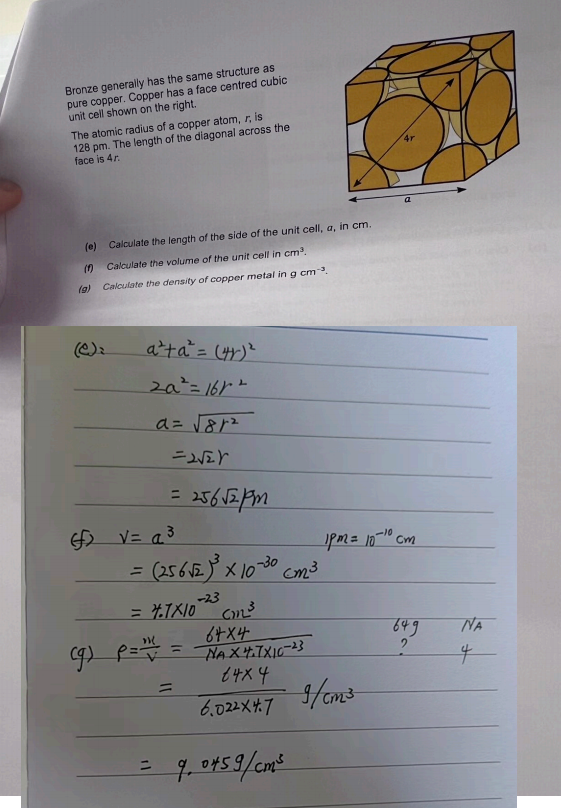 Bronze generally has the same structure as
pure copper. Copper has a face centred cubic
unit cell shown on the right.
The atomic radius of a copper atom, r, is
128 pm. The length of the diagonal across the
face is 4r.
4r
a
(e) Calculate the length of the side of the unit cell, a, in cm.
(f) Calculate the volume of the unit cell in cm³.
(g) Calculate the density of copper metal in g cm⁻³.
(e): a²+a² = (4r)²
2a² = 16r²
a = √8r²
= 2√2r
= 256√2 pm
(f) V = a³ 1pm = 10⁻¹⁰ cm
= (256√2)³ × 10⁻³⁰ cm³
= 4.7×10⁻²³ cm³
(g) ρ = m/V = 64×4 / NA×4.7×10⁻²³ 64g NA
? 4
= 64×4 / 6.022×4.7 g/cm³
= 9.045g/cm³